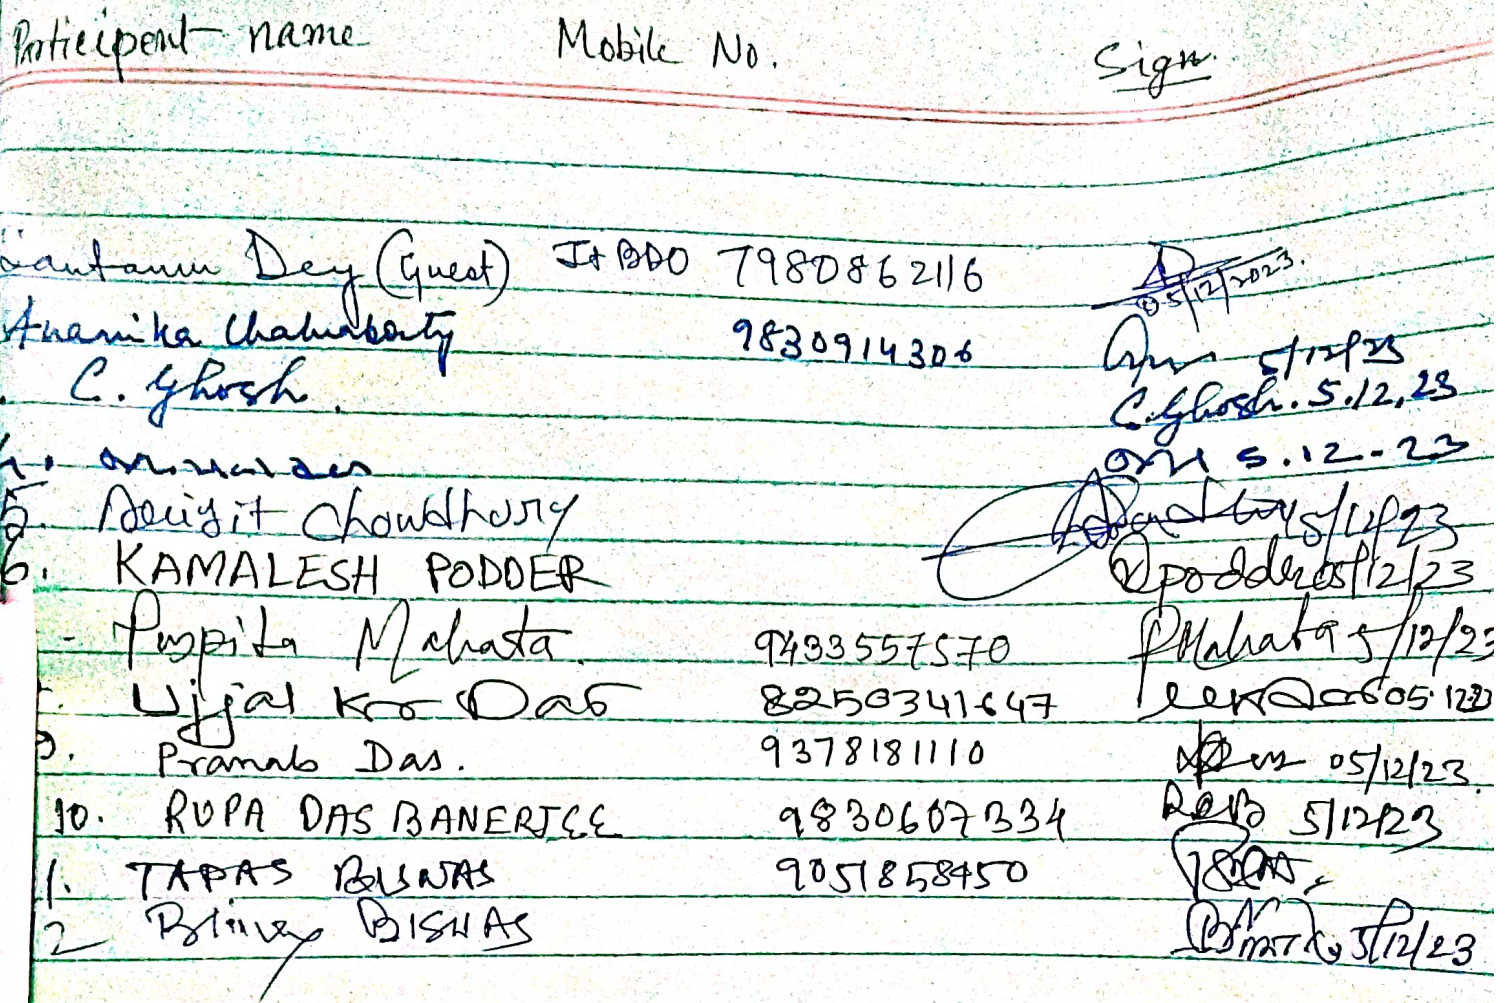 Participent name Mobile No. Sign
Santanu Dey (Guest) Jt BDO 7980862116 05/12/2023.
Anamika Chakraborty 9830914306 5/12/23
C. Ghosh. C. Ghosh. 5.12.23
4. 5.12-23
5. Chowdhury 5/12/23
6. KAMALESH PODDER podder 05/12/23
Puspita Mahata 9433557570 PMahata 5/12/23
Ujjal Kr Das 8250341647 05.12.23
9. Pranab Das. 9378181110 05/12/23
10. RUPA DAS BANERJEE 9830607334 RDB 5/12/23
1. TAPAS BISWAS 9051858450
2 BISWAS 5/12/23